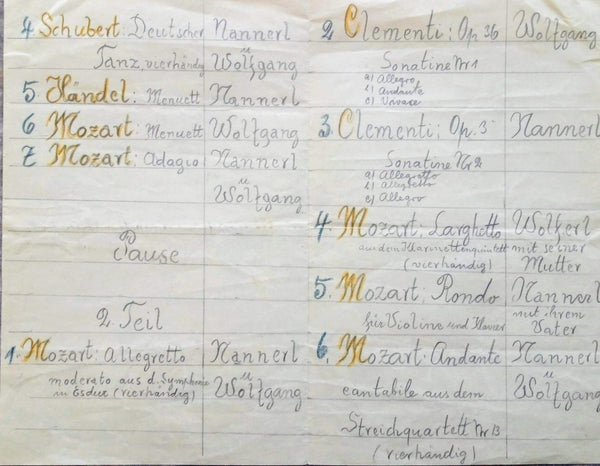 4. Schubert: Deutscher Nannerl
Tanz, vierhändig ü Wolfgang
5. Händel: Menuett Nannerl
6 Mozart: Menuett Wolfgang
7. Mozart: Adagio Nannerl
ü
Wolfgang
Pause
2. Teil
1. Mozart: Allegretto Nannerl
moderato aus d. Symphonie ü
in Esdur (vierhändig) Wolfgang
2. Clementi; Op 36 Wolfgang
Sonatine Nr 1
a) Allegro
b) Andante
c) Vivace
3. Clementi; Op. 3 Nannerl
Sonatine Nr 2
a) Allegretto
b) Allegretto
c) Allegro
4. Mozart: Larghetto Wolferl
aus dem Klarinettenquintett mit seiner
(vierhändig) Mutter
5. Mozart: Rondo Nannerl
für Violine und Klavier mit ihrem
Vater
6. Mozart: Andante Nannerl
ü
cantabile aus dem Wolfgang
Streichquartett Nr 13
(vierhändig)